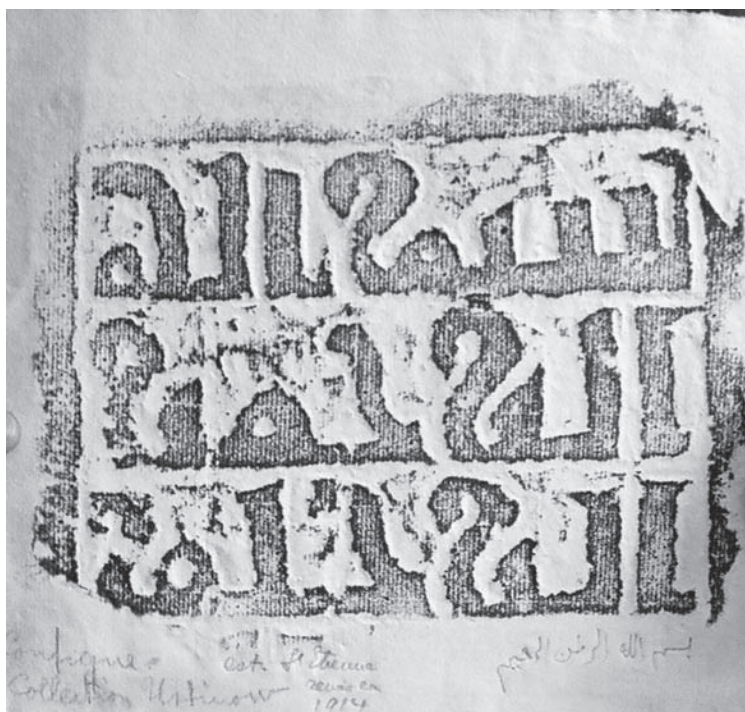 بسم الله
الرحمن
الرحيم
Collection Ustinow
est. St Etienne
remis en
1914
بسم الله الرحمن الرحيم